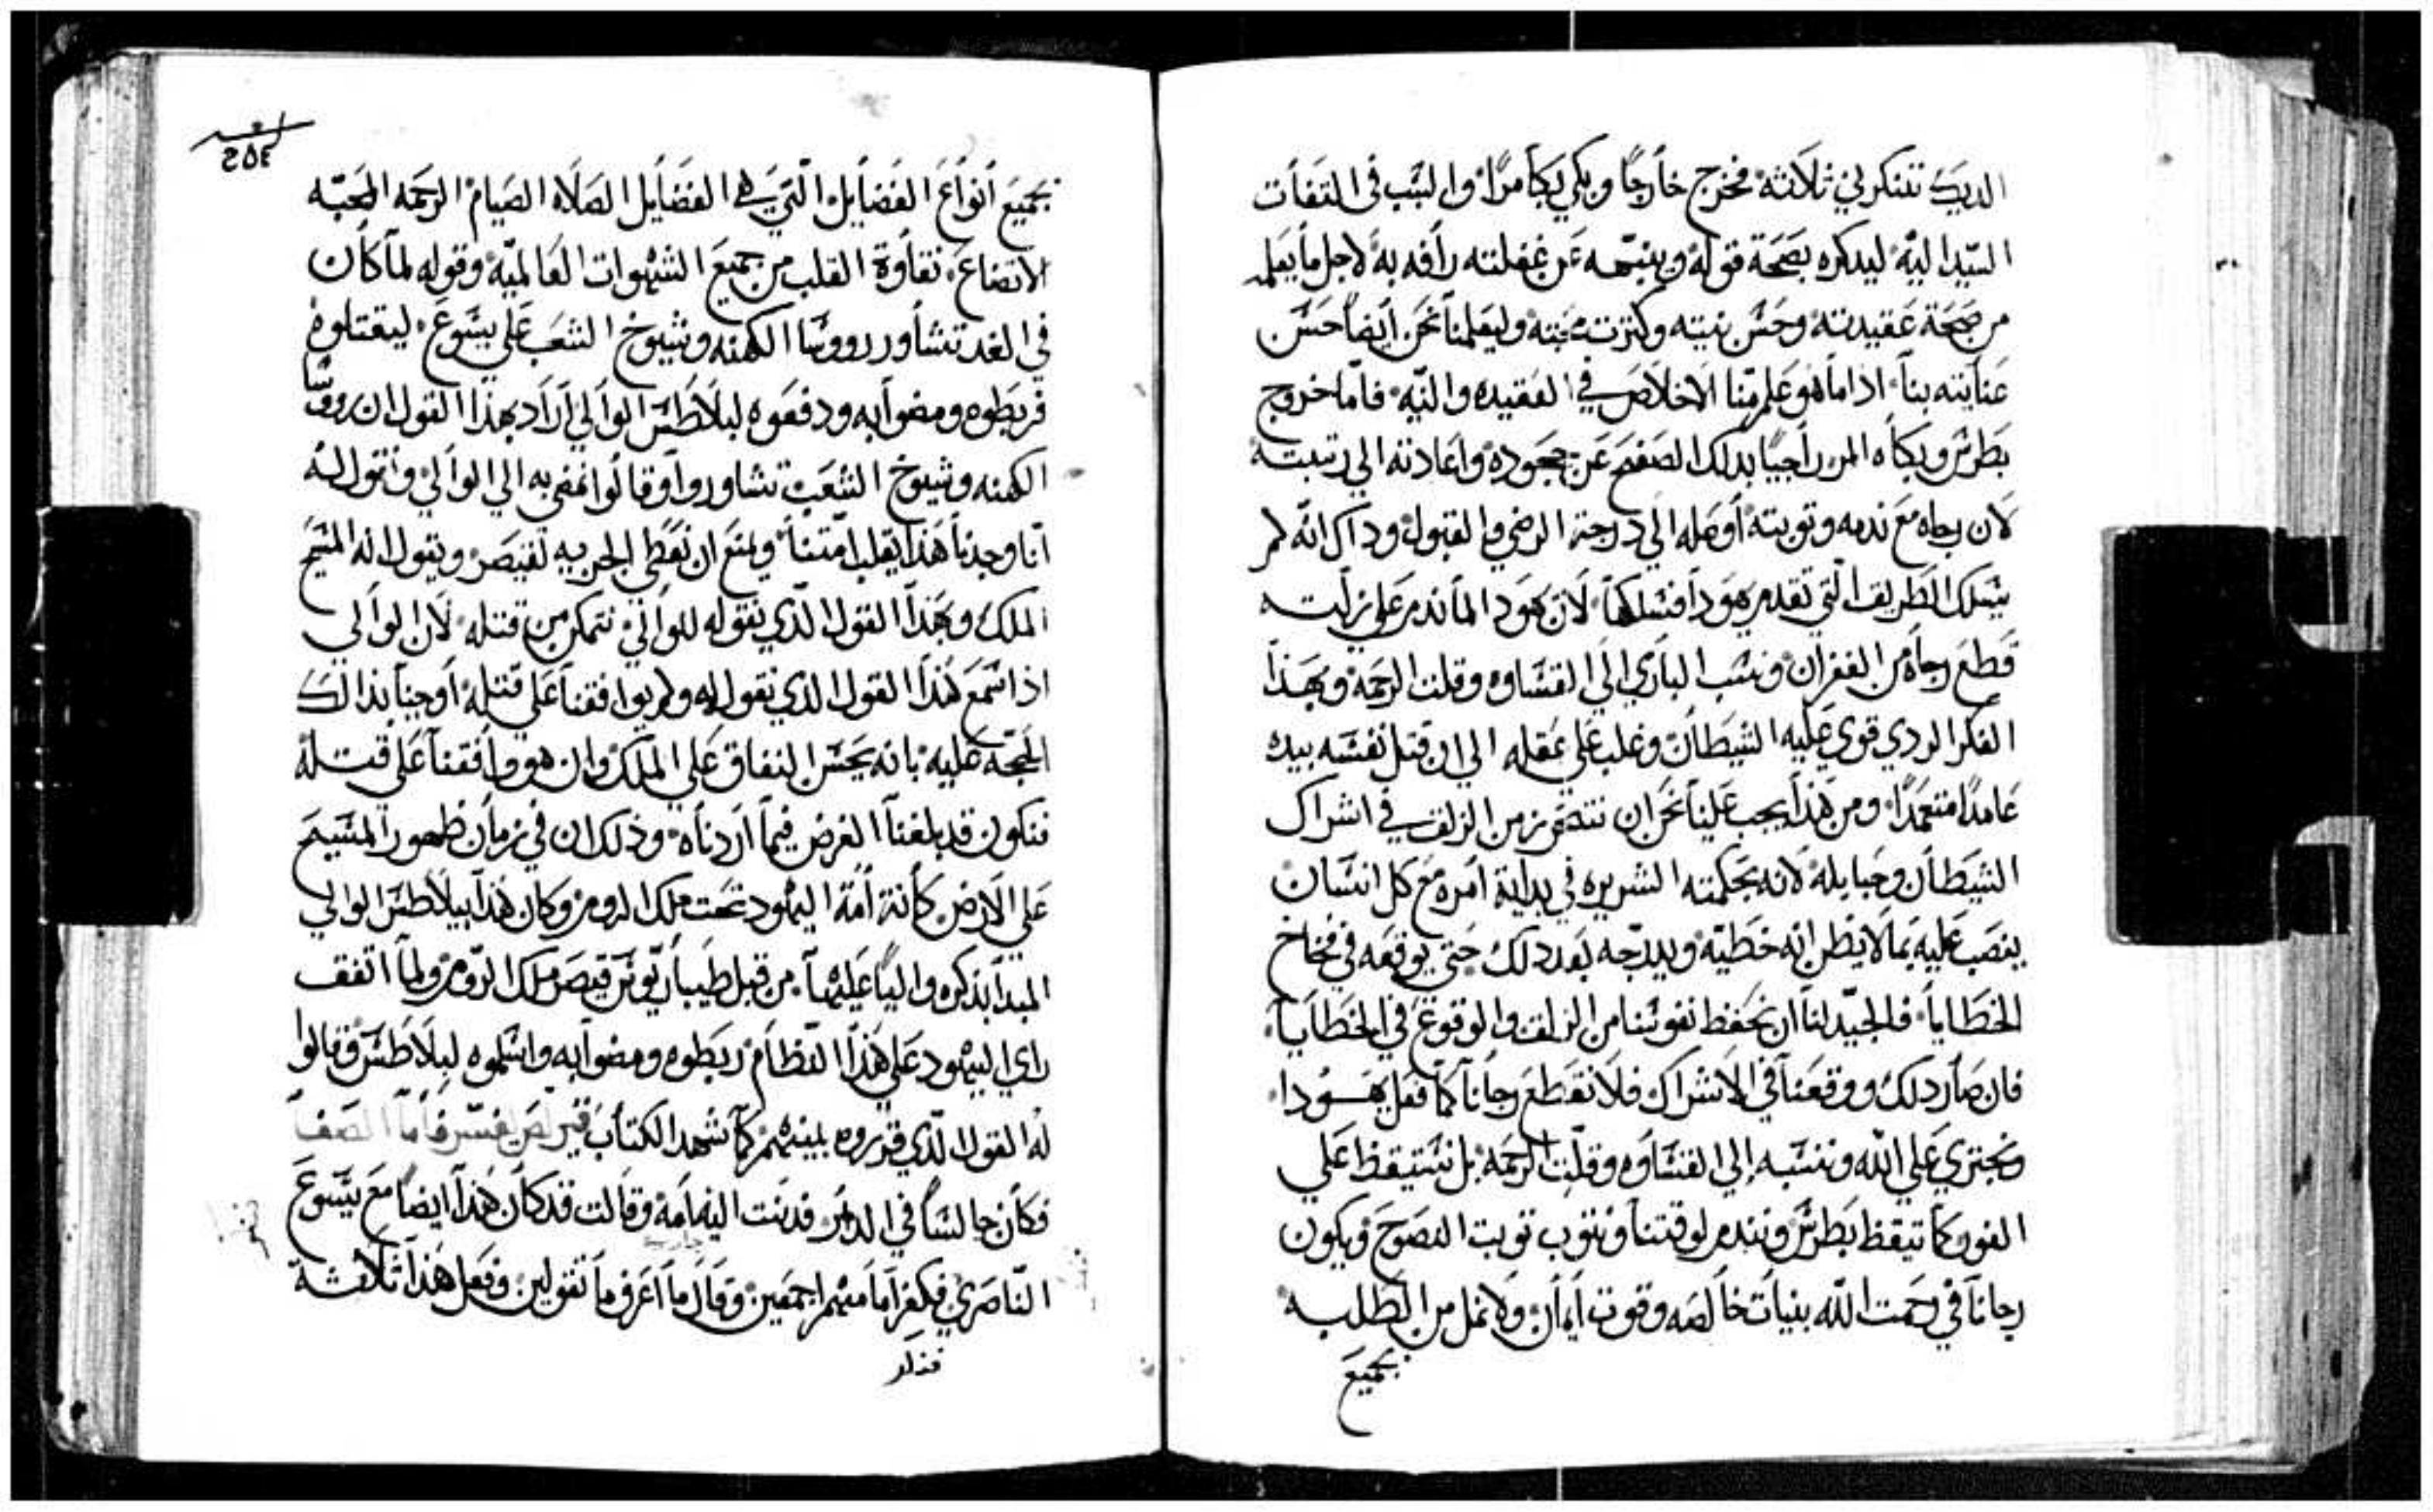 الديك تنكرني ثلاثة فخرج خارجًا وبكي بكا مرًا والسَبب في التفات
السَيد اليه ليذكره بصَحَة قوله وينبهه عَن غفلته رأفه به لاجل ما يعَلم
من صَحَة عَقيدته وحَسَن نيته وكثرت محَبته وليعَلمنا نحَن أيضاً حَسَن
عَنايته بنا اذا ما هو عَلم منّا الاخلاص في العَقيده والنيّه فامّا خروج
بَطرسَ وبكاه المر راجيًا بذلك الصَفح عَن جحَوده واعَادته الي رتبته
لان رجاه مَع ندمه وتوبته أوصَله الي درجة الرضي والقبول وذاك انّه لم
يسَلك الطَريق التي تقدم يهودا فسَلكها لان يهودا لما ندم عَلي زلته
قطَعَ رجاه من الغفران ونسَب الباري الَي القسَاوه وقلت الرحَمه وبهذا
الفكر الردي قوي عَليه الشيطَان وغلب عَلي عَقله الي ان قتل نفسَه بيده
عَامدًا متعَمدًا ومن هَذا يجب عَلينا نحَن ان نتحَرز من الزلق في اشراك
الشيَطان وحَبايله لانه بحَكمته الشريره في بداية امره مَع كل انسَان
ينصَب عَليه بما لا يظن انه خطَية ويدرّجه بعَد ذلك حَتي يوقعَه في فخاخ
الخطَايا فالجيّد لنا ان نحَفظ نفوسَنا من الزلق والوقوع في الخطَايا
فان صَار ذلك ووقعَنا في الاشراك فلا نقطَع رجانا كما فعَل يهودا
ونجتري عَلي الله وننسَبه إلي القسَاوه وقلّت الرحَمه بل نسَتيقظ عَلي
الفور كما تيقظ بَطرسَ ونندم لوقتنا ونتوب توبت النصَوحَ ويكون
رجانا في رحَمت الله بنيات خالصَه وقوت ايمان ولا نمل من الطَلبه
بجميعَ
بجميعَ أنواعَ الفضَايل الّتي هي الفضَايل الصَلاه الصَيام الرحَمه المحَبّه
الاتضاعَ نقاوة القلب من جميعَ الشهوات العَالميّه وقوله لما كان
في الغد تشاور رووسَا الكهنه وشيوخ الشعَب عَلي يسَوعَ ليقتلوه
فربطَوه ومضوا به ودفعَوه لبلاطَسَ الوالي أراد بهذا القول ان رووسَا
الكهنه وشيوخ الشعَب تشاوروا وقالوا نمضي به الي الوالي ونقول له
انّا وجدنا هَذا يقلب امّتنا ويمنعَ ان نعَطي الجزيه لقيصَر ويقول انه المسَيحَ
الملك وبهَذا القول الّذي نقوله للوالي نتمكن من قتله لان الوالي
اذا سَمَع هَذا القول الذي نقول له ولم يوافقنا عَلي قتله أوجبنا بذالك
الحَجّه عَليه بانه يحَسَن النفاق عَلي الملك وان هو وافقنا عَلي قتله
فنكون قد بلغنا الغرض فيما أردناه وذلك ان في زمان ظهور المسَيحَ
عَلي الارض كانة أمّة اليهود تحَت ملك الروم وكان هَذا بيلاطَسَ الوالي
المبدا بذكره واليًا عَليها من قبل طَيباريوسَ قيصَر ملك الروم ولما اتفق
راي اليهود عَلي هَذا النظام ربَطوه ومضوا به واسَلموه لبلاطَسَ وقالوا
له القول الّذي قرروه بينهم كما شهد الكتاب فاما الصَفا
فكان جالسَا في الدار فدنت اليه امَة وقالت قد كان هَذا ايضا مَع يسَوعَ
النّاصَري فكفر امامهم اجمعَين وقال ما اعَرف ما تقولين وفعَل هَذا ثلاثة